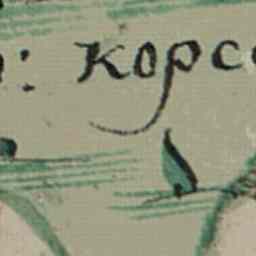 : корс